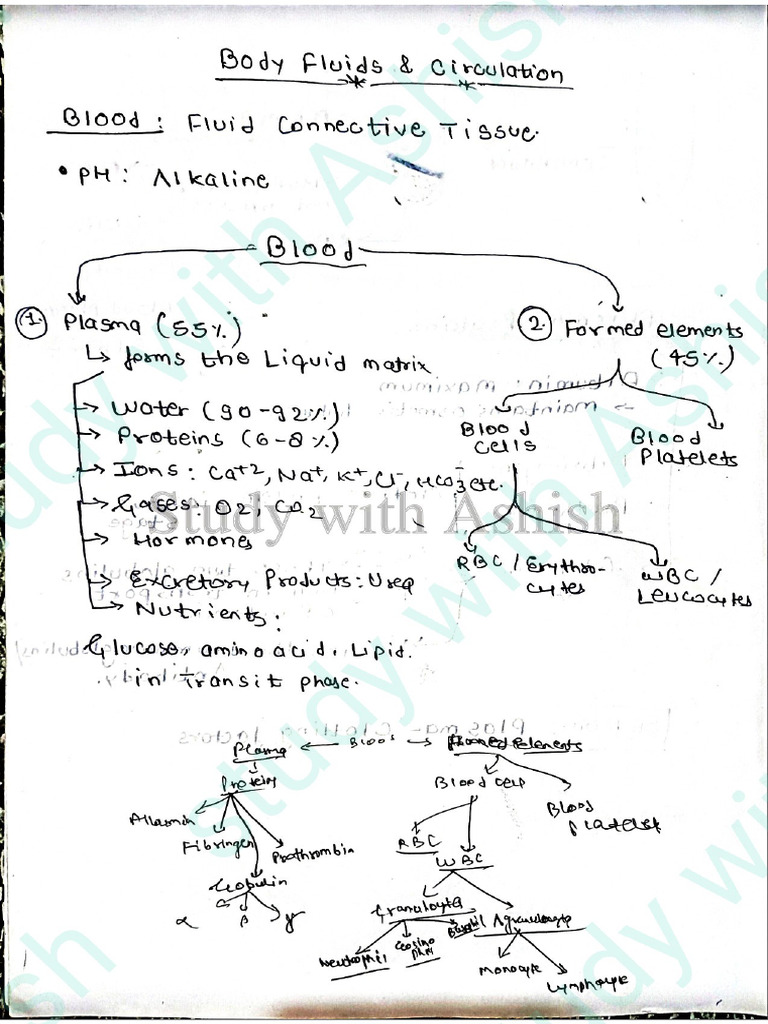 Body Fluids & Circulation
Blood: Fluid Connective Tissue.
• PH: Alkaline
Blood
1. Plasma (55%)
↳ forms the Liquid matrix
→ Water (90-92%)
→ Proteins (6-8%)
→ Ions: Ca+2, Na+, K+, Cl-, HCO3- etc.
→ Gases: O2, CO2
→ Hormones
→ Excretory Products: Urea
→ Nutrients:
Glucose, amino acid, Lipid.
in Transit phase.
2. Formed elements
(45%)
Blood
Cells
Blood
Platelets
RBC / Erythro-
cytes
WBC /
Leucocytes
Study with Ashish
Plasma ← Blood → Formed elements
Protein
Albumin
Fibrinogen
Prothrombin
Globulin
α
β
γ
Blood cell
Blood
platelets
RBC
WBC
Granulocyte
Agranulocyte
Neutrophil
Eosino
phil
Basophil
Monocyte
Lymphocyte
Study with Ashish
Study with Ashish
Study with Ashish